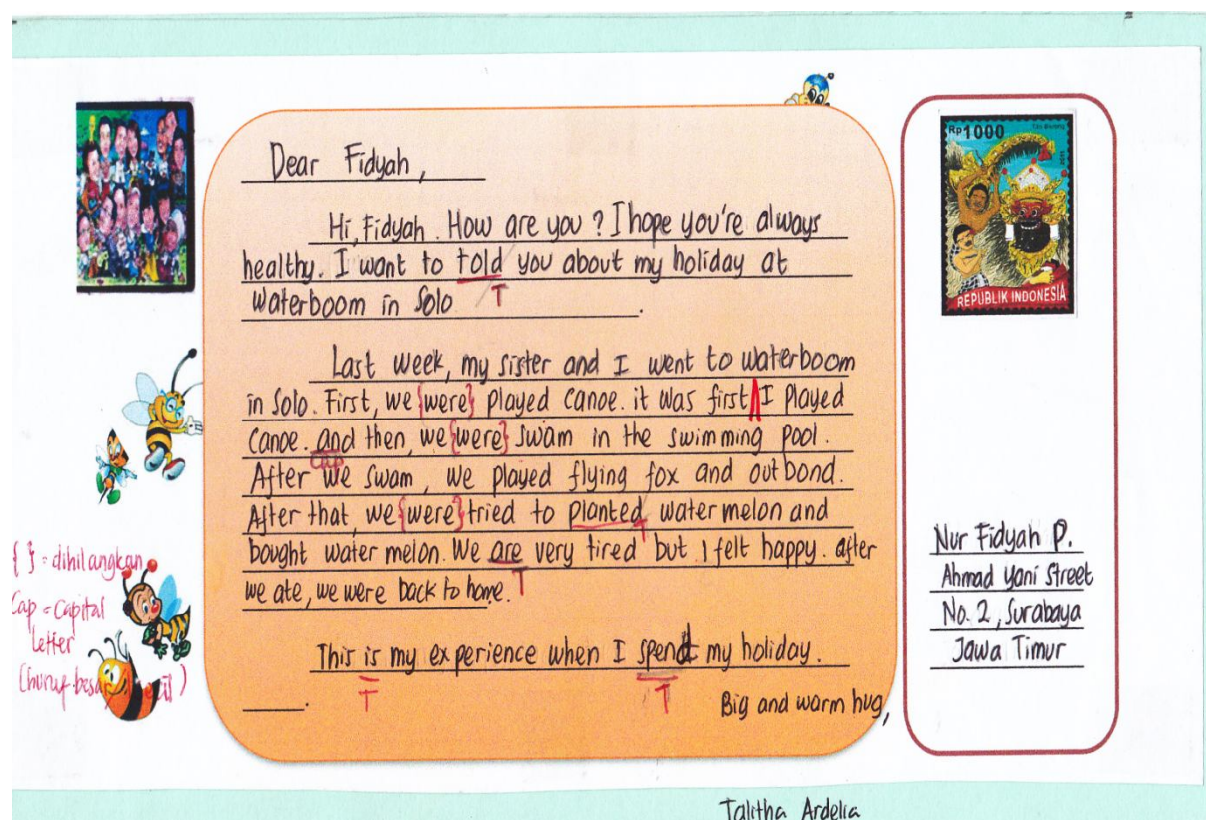 Dear Fidyah,
Hi, Fidyah. How are you? I hope you're always
healthy. I want to told you about my holiday at
T
waterboom in Solo.
Last week, my sister and I went to waterboom
in Solo. First, we {were} played canoe. it was first I played
canoe. and then, we {were} swam in the swimming pool.
Cap
After we swam, we played flying fox and outbond.
After that, we {were} tried to planted water melon and
T
bought water melon. We are very tired but I felt happy. after
T
we ate, we were back to home.
This is my experience when I spend my holiday.
T T
Big and warm hug,
Talitha Ardelia
{ } = dihilangkan
Cap = Capital
letter
(huruf
Rp1000
REPUBLIK INDONESIA
Nur Fidyah P.
Ahmad Yani Street
No. 2, Surabaya
Jawa Timur